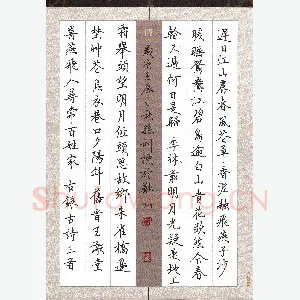 遲日江山麗春風花草香泥融飛燕子沙
暖睡鴛鴦江碧鳥逾白山青花欲然今春
看又過何日是歸年牀前明月光疑是地上
霜舉頭望明月低頭思故鄉朱雀橋邊
野草花烏衣巷口夕陽斜舊時王謝堂
前燕飛入尋常百姓家 古詩三首
Shufawang.CN